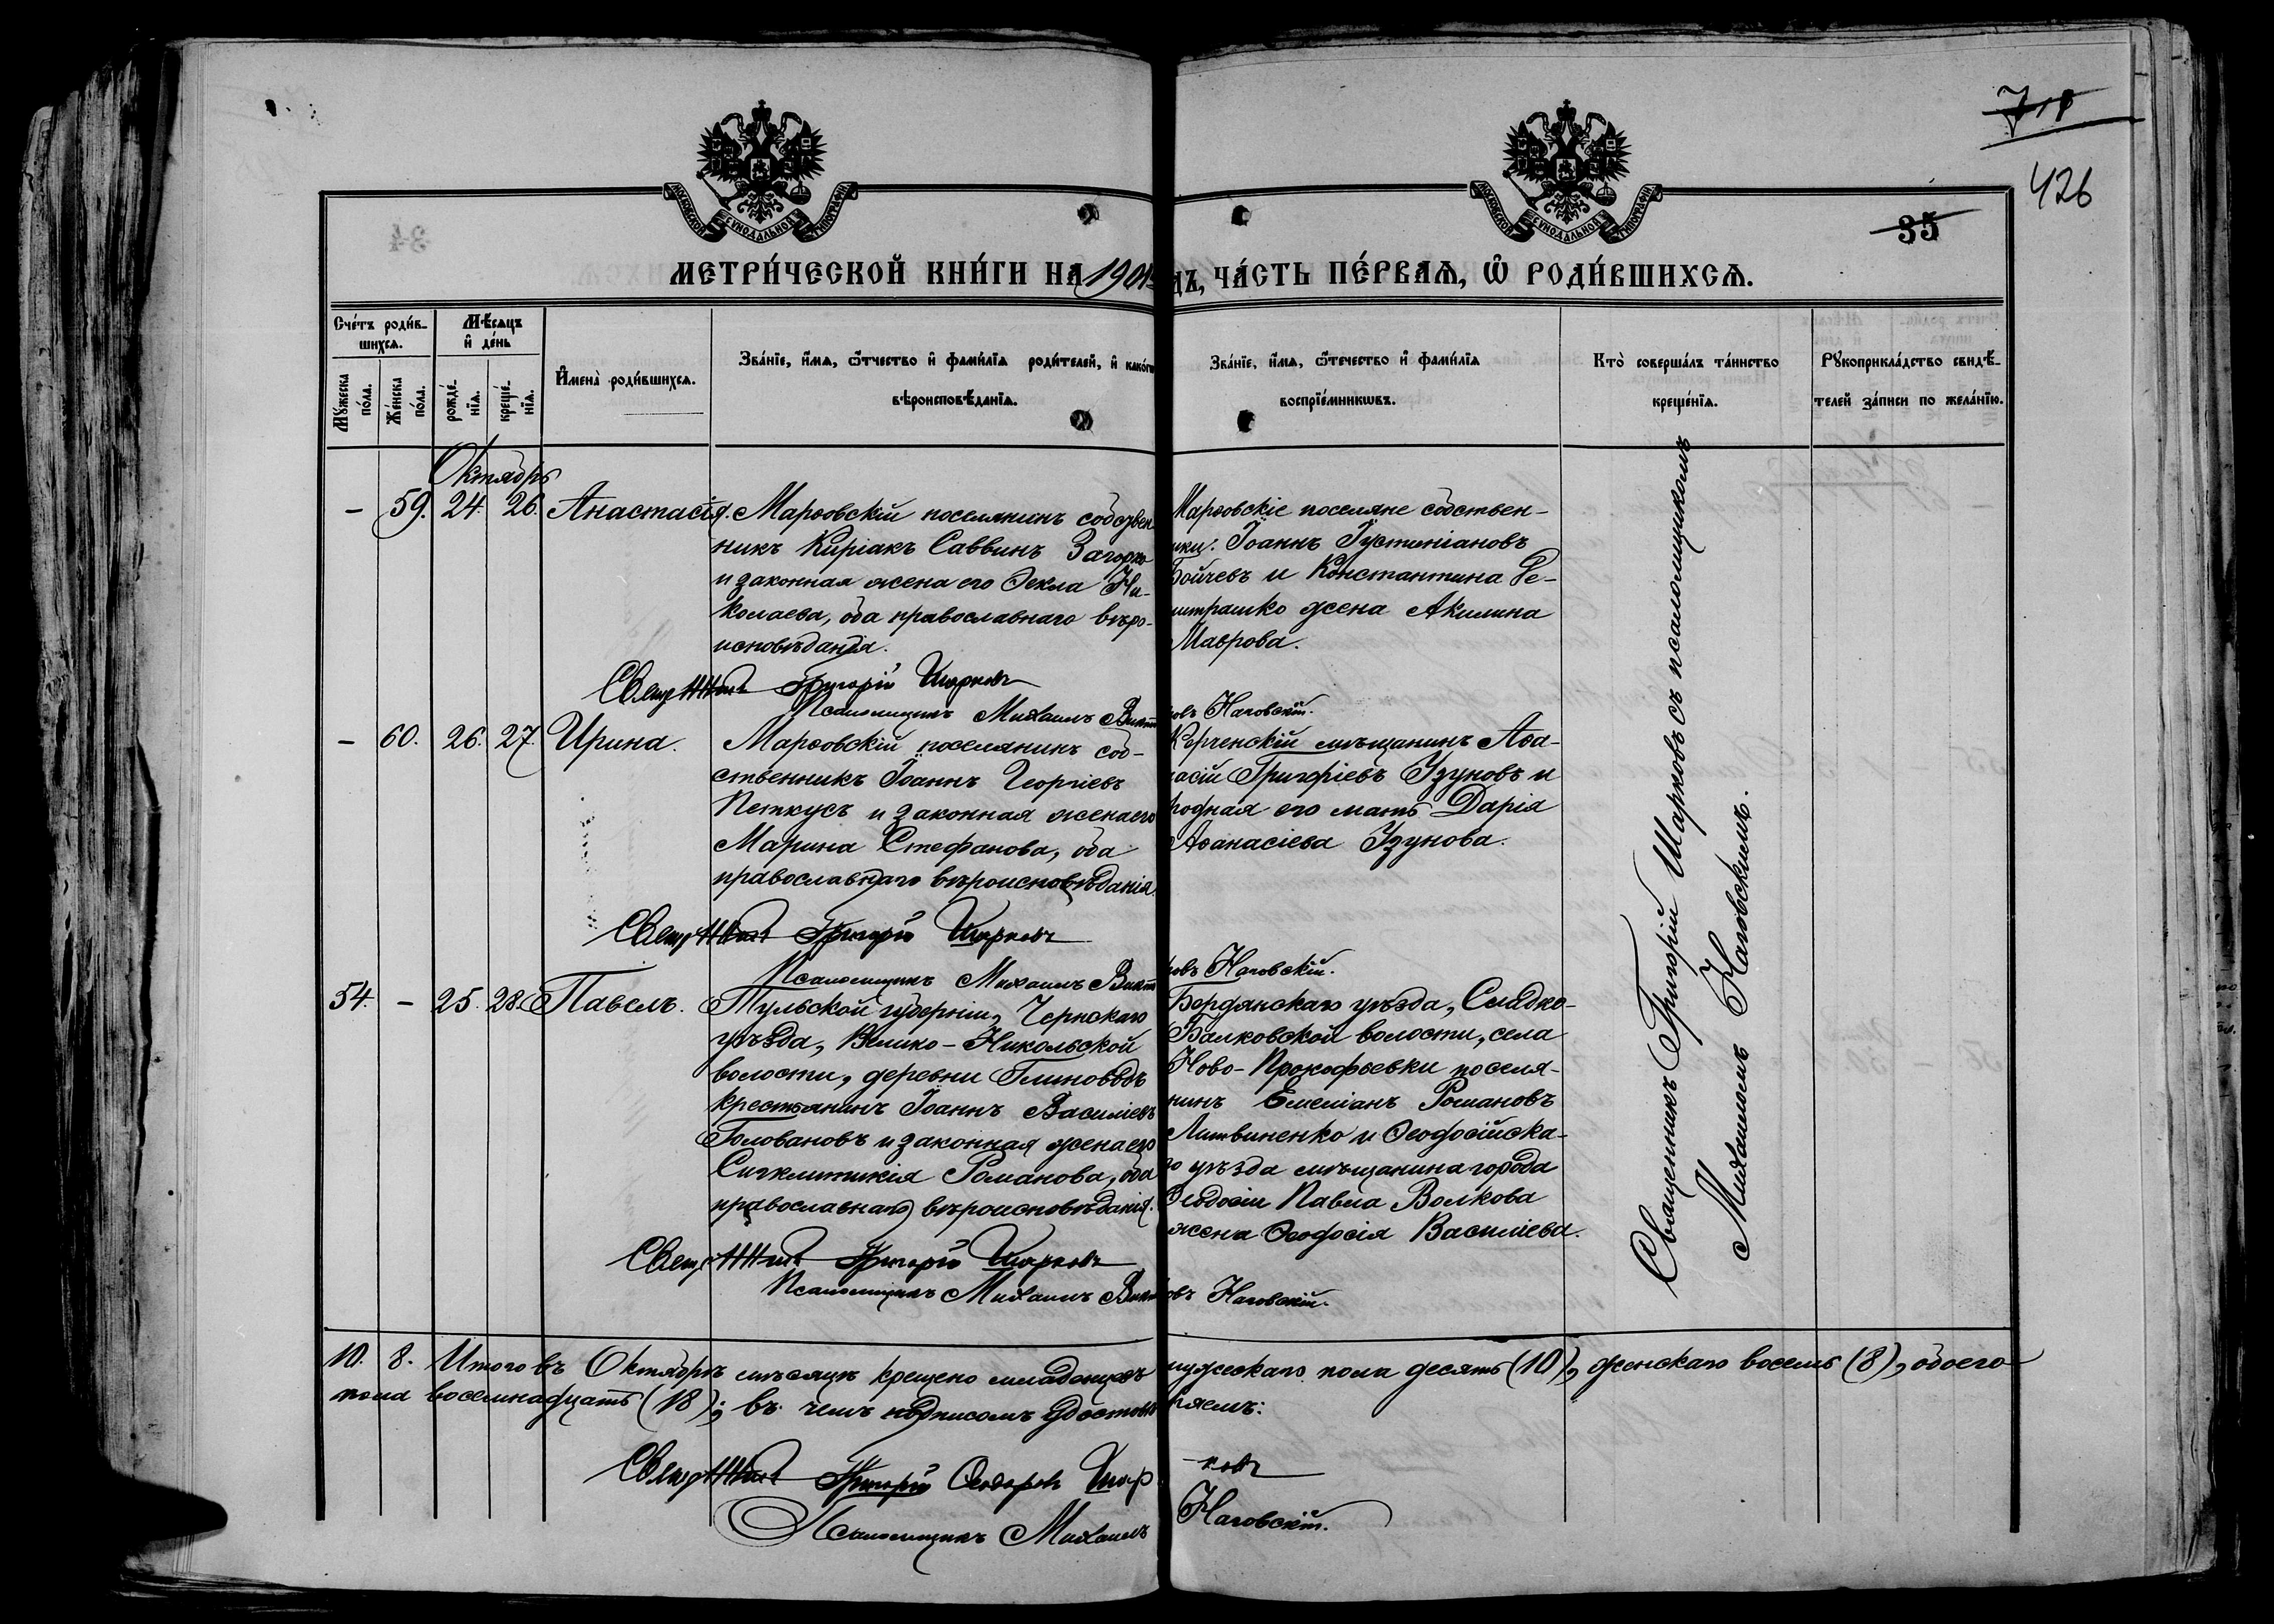 718
426
35
МЕТРИ́ЧЕСКОЙ КНИ́ГИ НА 1901 ДЪ, ЧА́СТЬ ПЕ́РВАѦ, Ѡ҆ РОДИ́ВШИХСѦ.
Сче́тъ роди́в-
шихсѧ.
Мѣ́сѧцъ
и҆ де́нь
Мꙋжеска
по́ла.
Же́нска
по́ла.
рожде́-
нїѧ.
креще́-
нїѧ.
И҆мена̀ роди́вшихсѧ.
Зва́нїе, и҆́мѧ, ѻ҆́тчество и҆ фами́лїѧ роди́телей, и҆ како́гѡ
вѣроисповѣ́данїѧ.
Зва́нїе, и҆́мѧ, ѻ҆те́чество и҆ фами́лїѧ
воспрїе́мникѡвъ.
Кто̀ соверша́лъ та́инство
креще́нїѧ.
Рꙋкоприкла́дство свидѣ́-
телей за́писи по жела́нїю.
Октябрь
– 59. 24. 26. Анастасія. Марѳовскій поселянинъ собствен
никъ Киріакъ Саввинъ Загорко
и законная жена его Ѳекла Ни-
колаева, оба православнаго вѣро-
исповѣданія.
Марѳовскіе поселяне собствен-
ики: Іоаннъ Іустиніановъ
Бойчевъ и Константина Де-
митрашко жена Акилина
Маврова.
Священникъ Григорій Шарковъ
Псаломщикъ Михаилъ Викт ровъ Наговскій.
– 60. 26. 27. Ирина. Марѳовскій поселянинъ соб-
ственникъ Іоаннъ Георгіевъ
Петкусъ и законная жена его
Марина Стефанова, оба
православнаго вѣроисповѣданія.
Керченскій мѣщанинъ Аѳа-
насій Григоріевъ Узуновъ и
родная его мать Дарія
Аѳанасіева Узунова.
Священникъ Григорій Шарковъ
Псаломщикъ Михаилъ Викт ровъ Наговскій.
54. – 25. 28. Павелъ. Тульской губерніи, Чернскаго
уѣзда, Велико-Никольской
волости, деревни
крестьянинъ Іоаннъ Василіевъ
Головановъ и законная жена его
Сигклитикія Романова, оба
православнаго вѣроисповѣданія.
Бердянскаго уѣзда, Сладко-
Балковской волости, села
Ново-Прокофьевки поселя-
нинъ Емеліанъ Романовъ
Литвиненко и Ѳеодосійска-
го уѣзда мѣщанина города
Ѳеодосіи Павла Волкова
жена Ѳеодосія Василіева.
Священникъ Григорій Шарковъ
Псаломщикъ Михаилъ Викт ровъ Наговскій.
Священникъ Григорій Шарковъ съ псаломщикомъ
Михаиломъ Наговскимъ.
10. 8. Итого въ Октябрѣ мѣсяцѣ крещено младенцевъ мужескаго пола десять (10), женскаго восемь (8), обоего
пола восемнадцать (18); въ чемъ подписомъ удостовѣряемъ:
Священникъ Григорій Ѳеодоровъ Шар-ковъ
Псаломщикъ Михаилъ Наговскій.